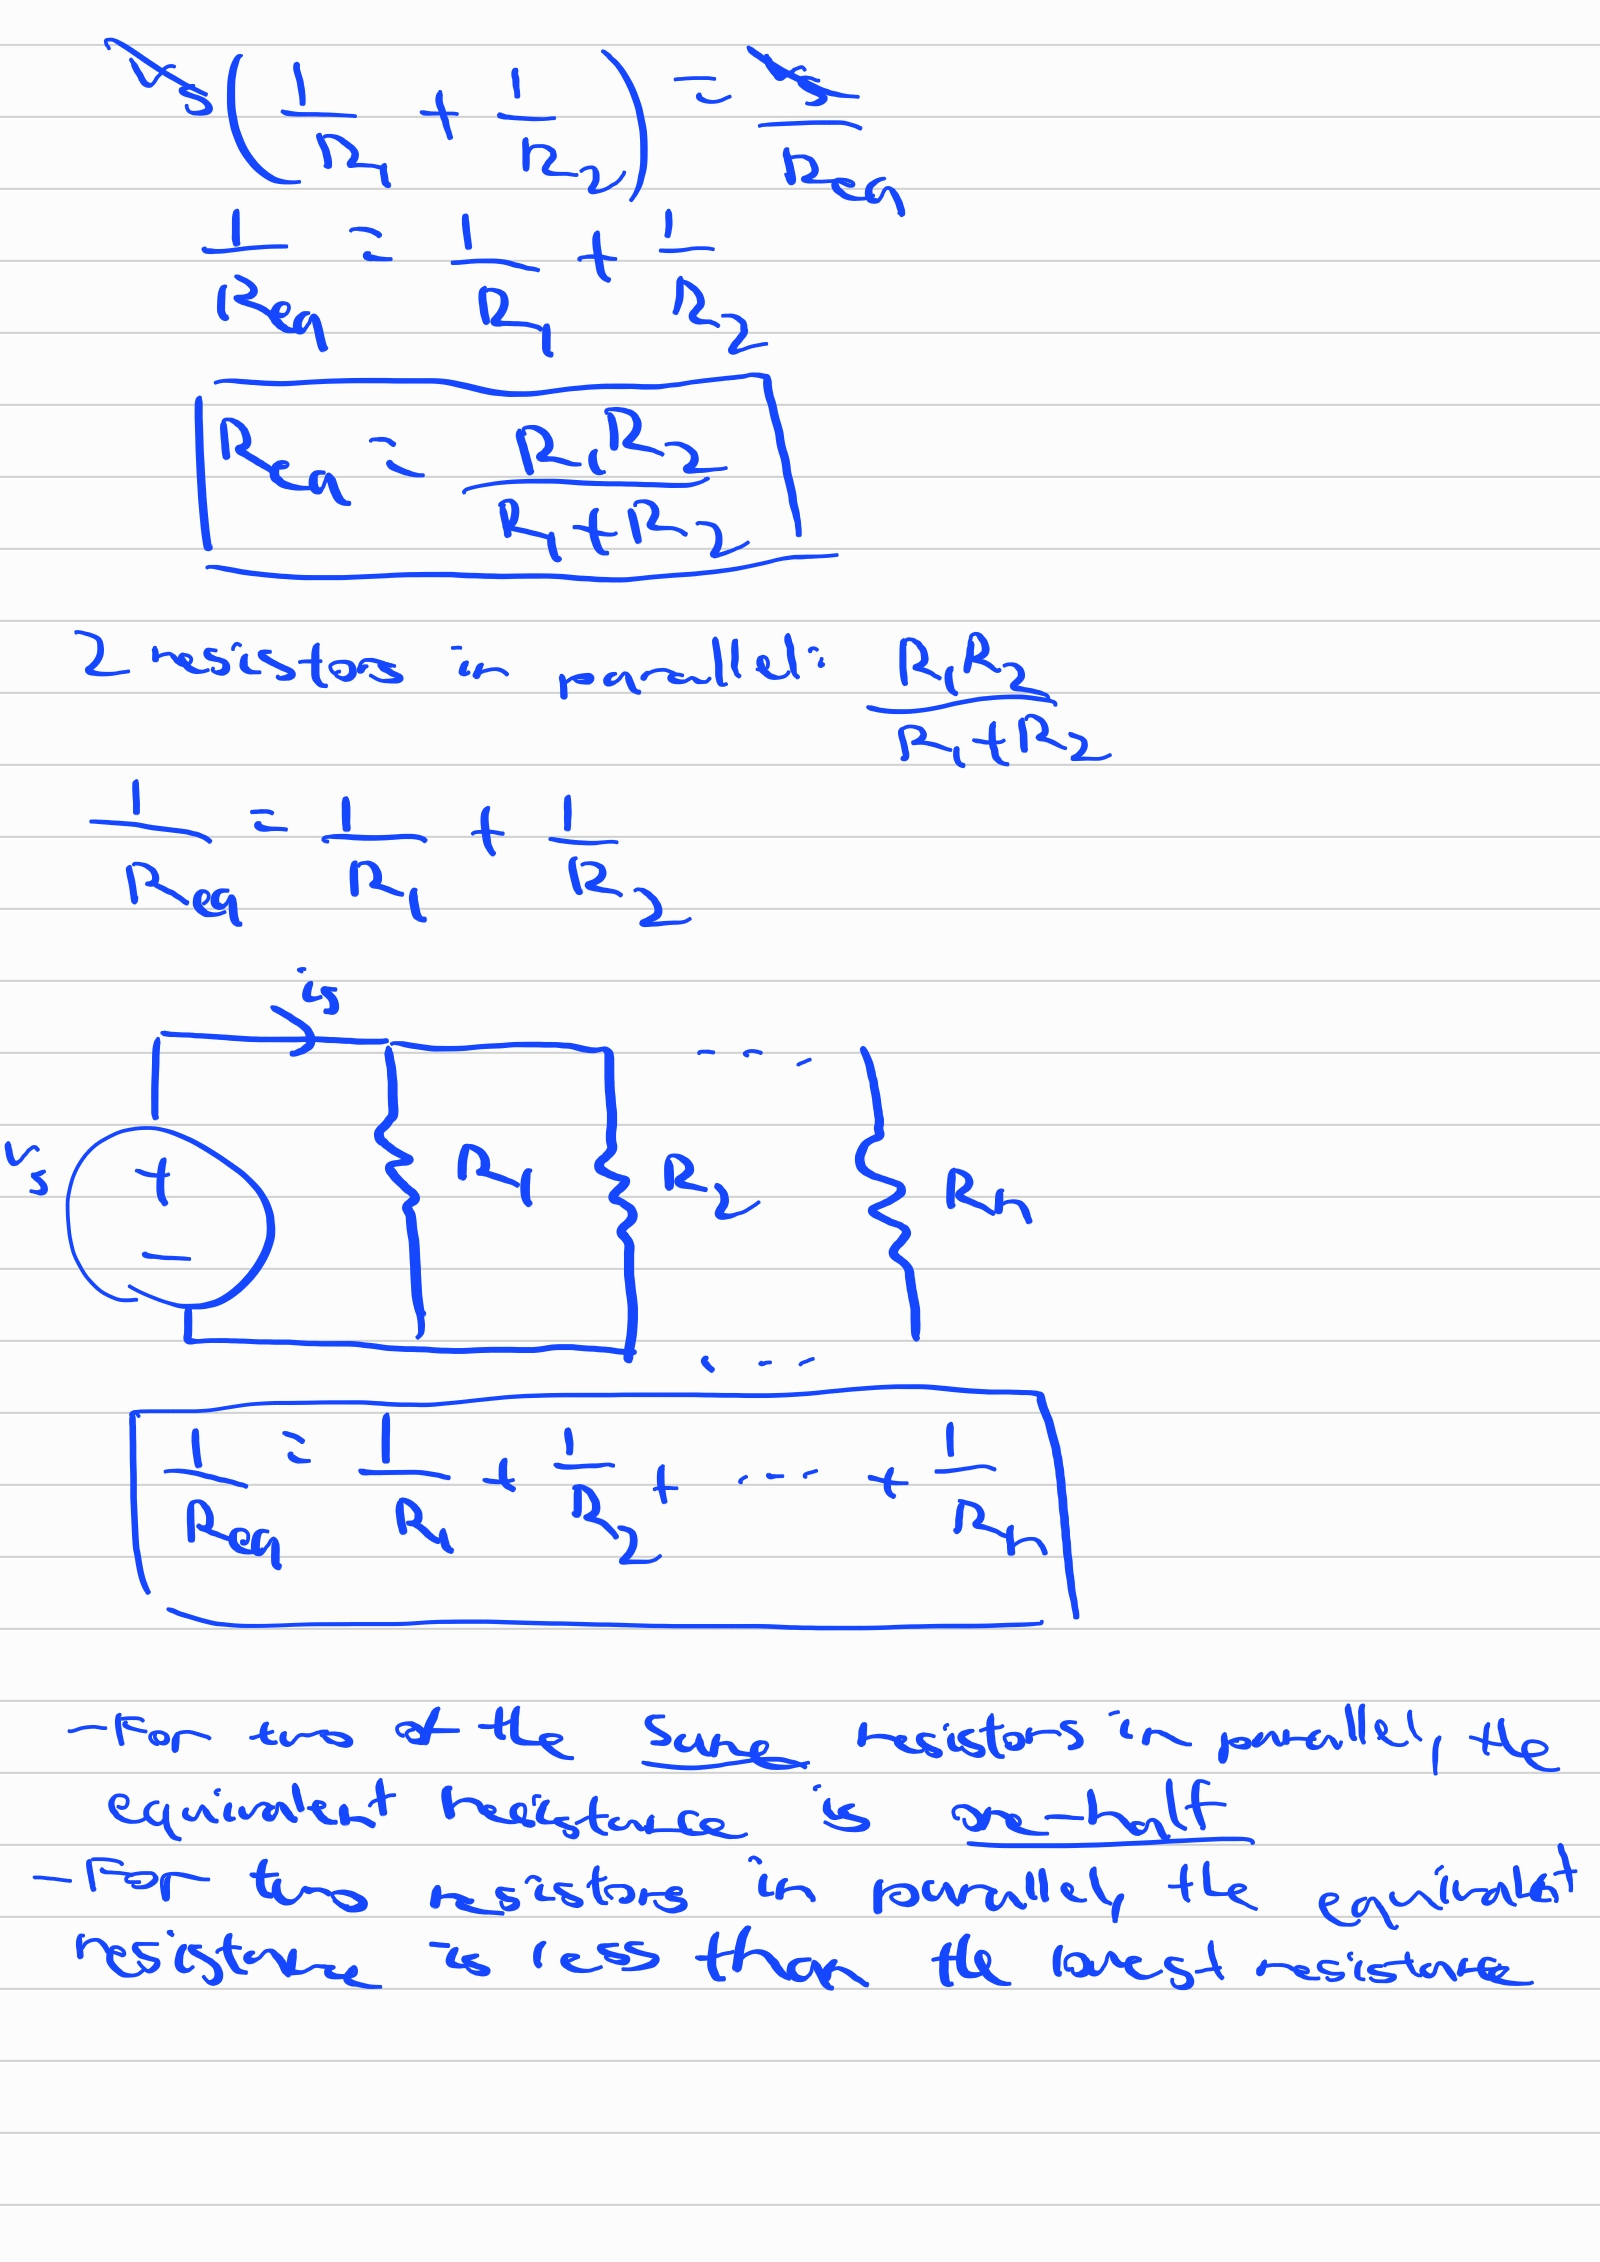 Vs(1/R1 + 1/R2) = Vs/Req
1/Req = 1/R1 + 1/R2
Req = R1R2/(R1+R2)
2 resistors in parallel: R1R2/(R1+R2)
1/Req = 1/R1 + 1/R2
is
Vs + - R1 R2 ---- Rn
....
1/Req = 1/R1 + 1/R2 + .... + 1/Rn
-For two of the same resistors in parallel, the
equivalent resistance is one-half
-For two resistors in parallel, the equivalent
resistance is less than the lowest resistance